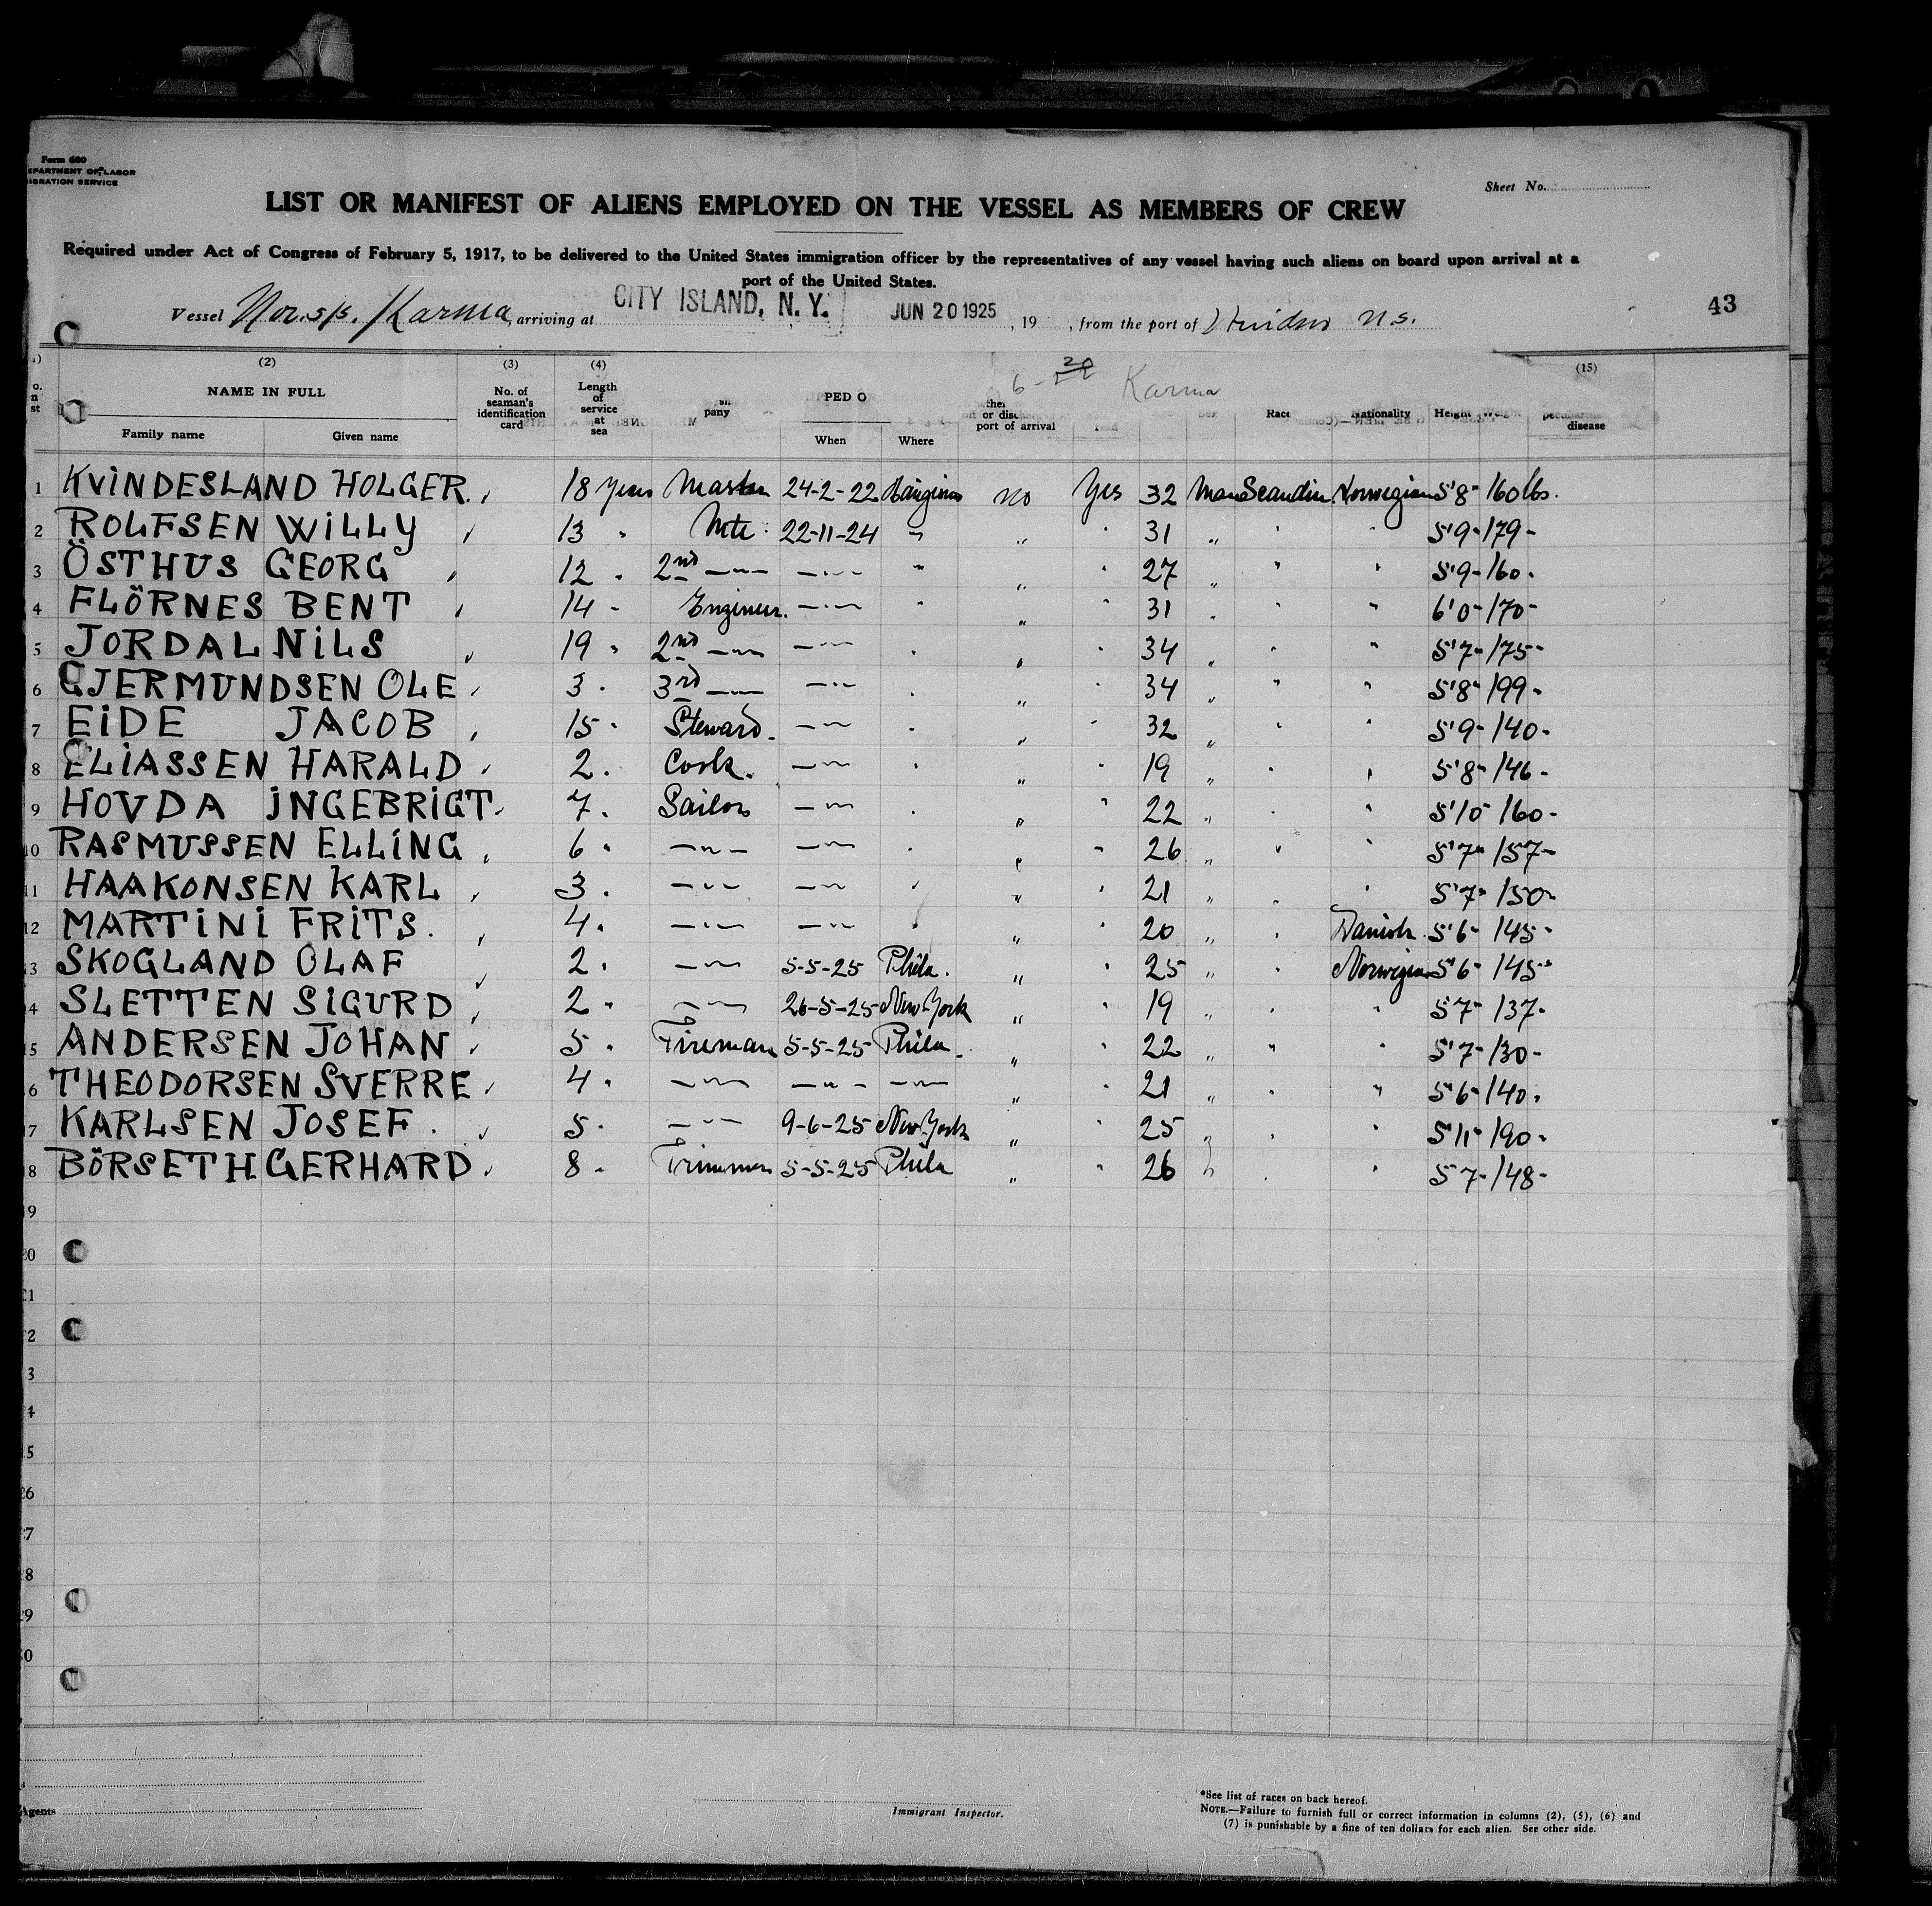 Form 680
DEPARTMENT OF LABOR
IMMIGRATION SERVICE
Sheet No.
LIST OR MANIFEST OF ALIENS EMPLOYED ON THE VESSEL AS MEMBERS OF CREW
Required under Act of Congress of February 5, 1917, to be delivered to the United States immigration officer by the representatives of any vessel having such aliens on board upon arrival at a
port of the United States.
Vessel Nor. s/s. Karma, arriving at CITY ISLAND, N. Y. JUN 20 1925, 19 , from the port of N.S.
43
(2) (3) (4) (15)
6-20 Karma
NAME IN FULL No. of seaman's identification card Length of service at sea pany PED O When Where port of arrival Race Nationality Height Weight disease
Family name Given name
1 KVINDESLAND HOLGER. 18 years Master 24-2-22 no Yes 32 Man Scandin Norwegian 5'8" 160 lbs.
2 ROLFSEN WILLY 13 " Mte 22-11-24 " " " 31 " " " 5'9-179-
3 ÖSTHUS GEORG 12 " 2nd —"— —"— " " " 27 " " " 5'9-160.
4 FLÖRNES BENT 14 " Engineer. —"— " " " 31 " " " 6'0-170-
5 JORDAL NILS 19 " 2nd —"— —"— " " " 34 " " " 5'7-175-
6 GJERMUNDSEN OLE 3 " 3rd —"— —"— " " " 34 " " " 5'8"199-
7 EIDE JACOB 15 " Steward. —"— " " " 32 " " " 5'9-140-
8 ELIASSEN HARALD 2 " Cook. —"— " " " 19 " " " 5'8"146-
9 HOVDA INGEBRIGT 7 " Sailor —"— " " " 22 " " " 5'10"160-
10 RASMUSSEN ELLING 6 " —"— —"— " " " 26 " " " 5'7"157-
11 HAAKONSEN KARL 3 " —"— —"— " " " 21 " " " 5'7"150-
12 MARTINI FRITS. 4 " —"— —"— " " " 20 " " Danish 5'6" 145-
13 SKOGLAND OLAF 2 " —"— 5-5-25 Phila. " " 25 " " Norwegian 5'6" 145"
14 SLETTEN SIGURD 2 " —"— 26-5-25 New York " " 19 " " " 5'7-137-
15 ANDERSEN JOHAN 5 " Fireman 5-5-25 Phila. " " 22 " " " 5'7-130-
16 THEODORSEN SVERRE 4 " —"— —"— —"— " " 21 " " " 5'6-140.
17 KARLSEN JOSEF. 5 " —"— 9-6-25 New York " " 25 " " " 5'11"190-
18 BÖRSETH GERHARD 8 " Trimmer 5-5-25 Phila " " 26 " " " 5'7-148-
19
20
21
22
23
24
25
26
27
28
29
30
Agents
Immigrant Inspector.
*See list of races on back hereof.
NOTE.—Failure to furnish full or correct information in columns (2), (5), (6) and
(7) is punishable by a fine of ten dollars for each alien. See other side.